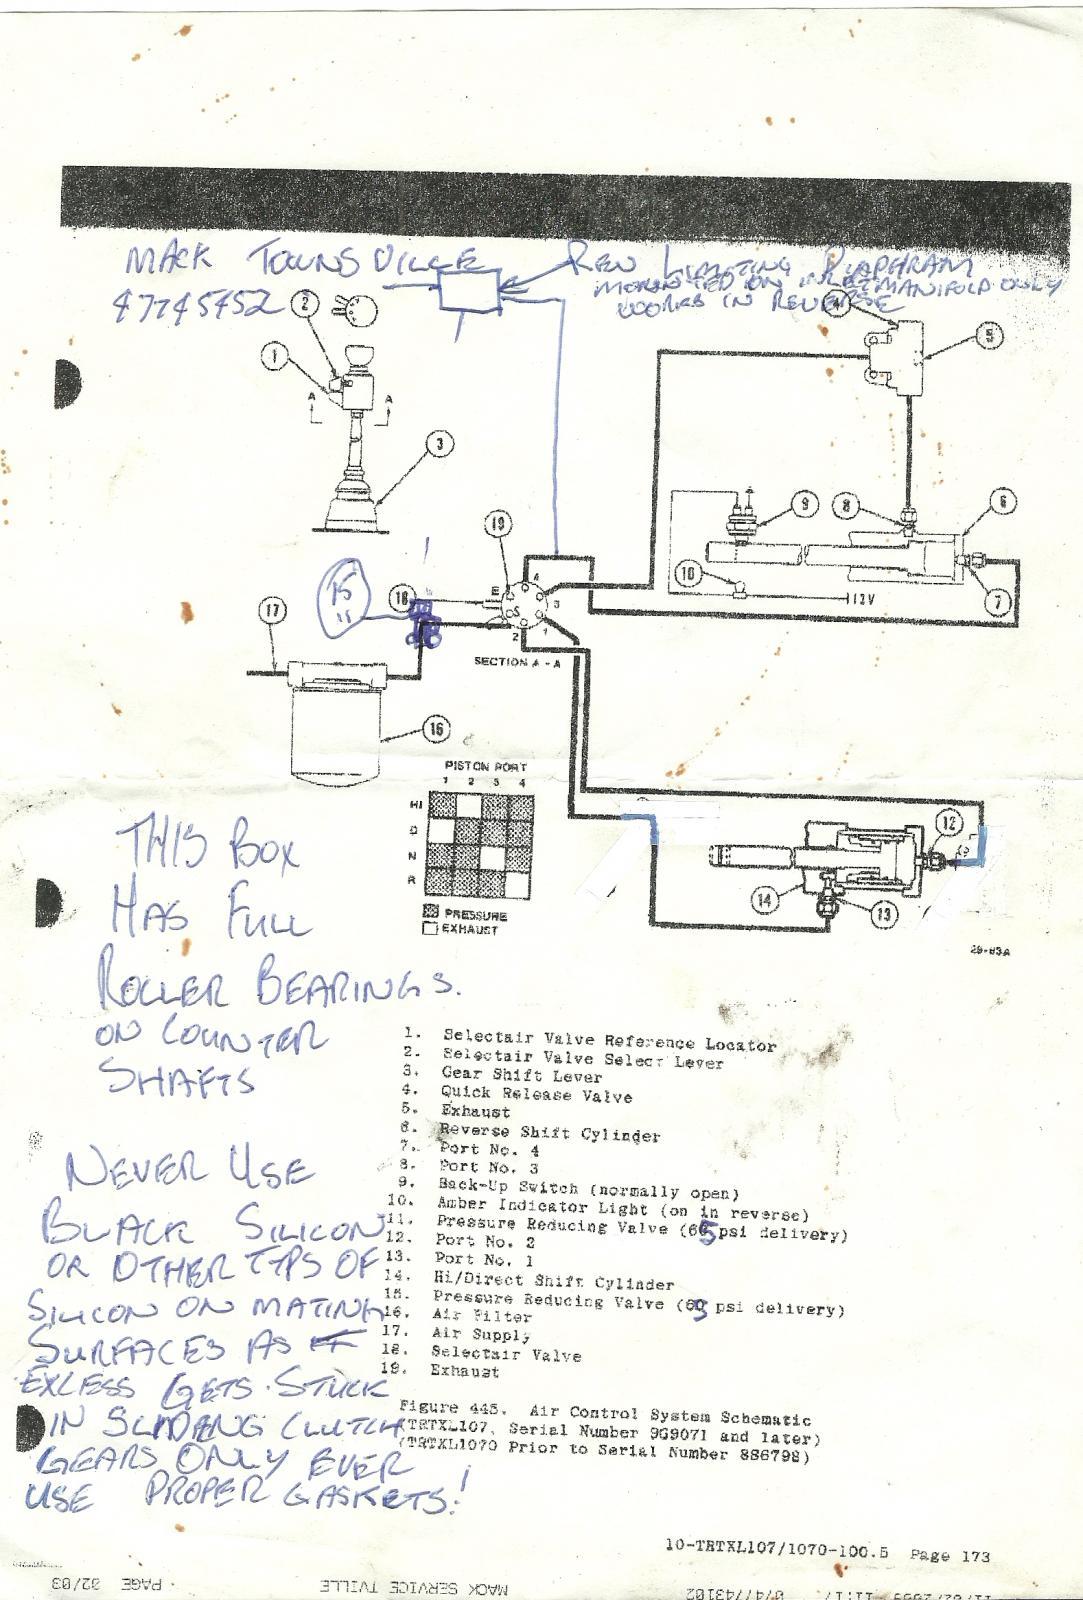 MACK TOWNSVILLE
47745452
REV LIMITING DIAPHRAM
MOUNTED ON INLET MANIFOLD ONLY
WORKS IN REVERSE
2
4
5
1
A A
3
9
8
6
19
10
7
12V
15
11
18
E
4
3
S
2
1
17
SECTION A-A
16
PISTON PORT
1 2 3 4
HI
D
N
R
PRESSURE
EXHAUST
12
14
13
29-83A
THIS BOX
HAS FULL
ROLLER BEARINGS.
ON COUNTER
SHAFTS
NEVER USE
BLACK SILICON
OR OTHER TYPS OF
SILICON ON MATING
SURFACES AS
EXCESS GETS STUCK
IN SLIDING CLUTCH
GEARS ONLY EVER
USE PROPER GASKETS!
1. Selectair Valve Reference Locator
2. Selectair Valve Select Lever
3. Gear Shift Lever
4. Quick Release Valve
5. Exhaust
6. Reverse Shift Cylinder
7. Port No. 4
8. Port No. 3
9. Back-Up Switch (normally open)
10. Amber Indicator Light (on in reverse)
11. Pressure Reducing Valve (65 psi delivery)
12. Port No. 2
13. Port No. 1
14. Hi/Direct Shift Cylinder
15. Pressure Reducing Valve (60 psi delivery)
16. Air Filter
17. Air Supply
18. Selectair Valve
19. Exhaust
Figure 445. Air Control System Schematic
(TRTXL107, Serial Number 9G9071 and later)
(TRTXL1070 Prior to Serial Number 886798)
10-TRTXL107/1070-100.5 Page 173
MACK SERVICE TVILLE PAGE 02/03